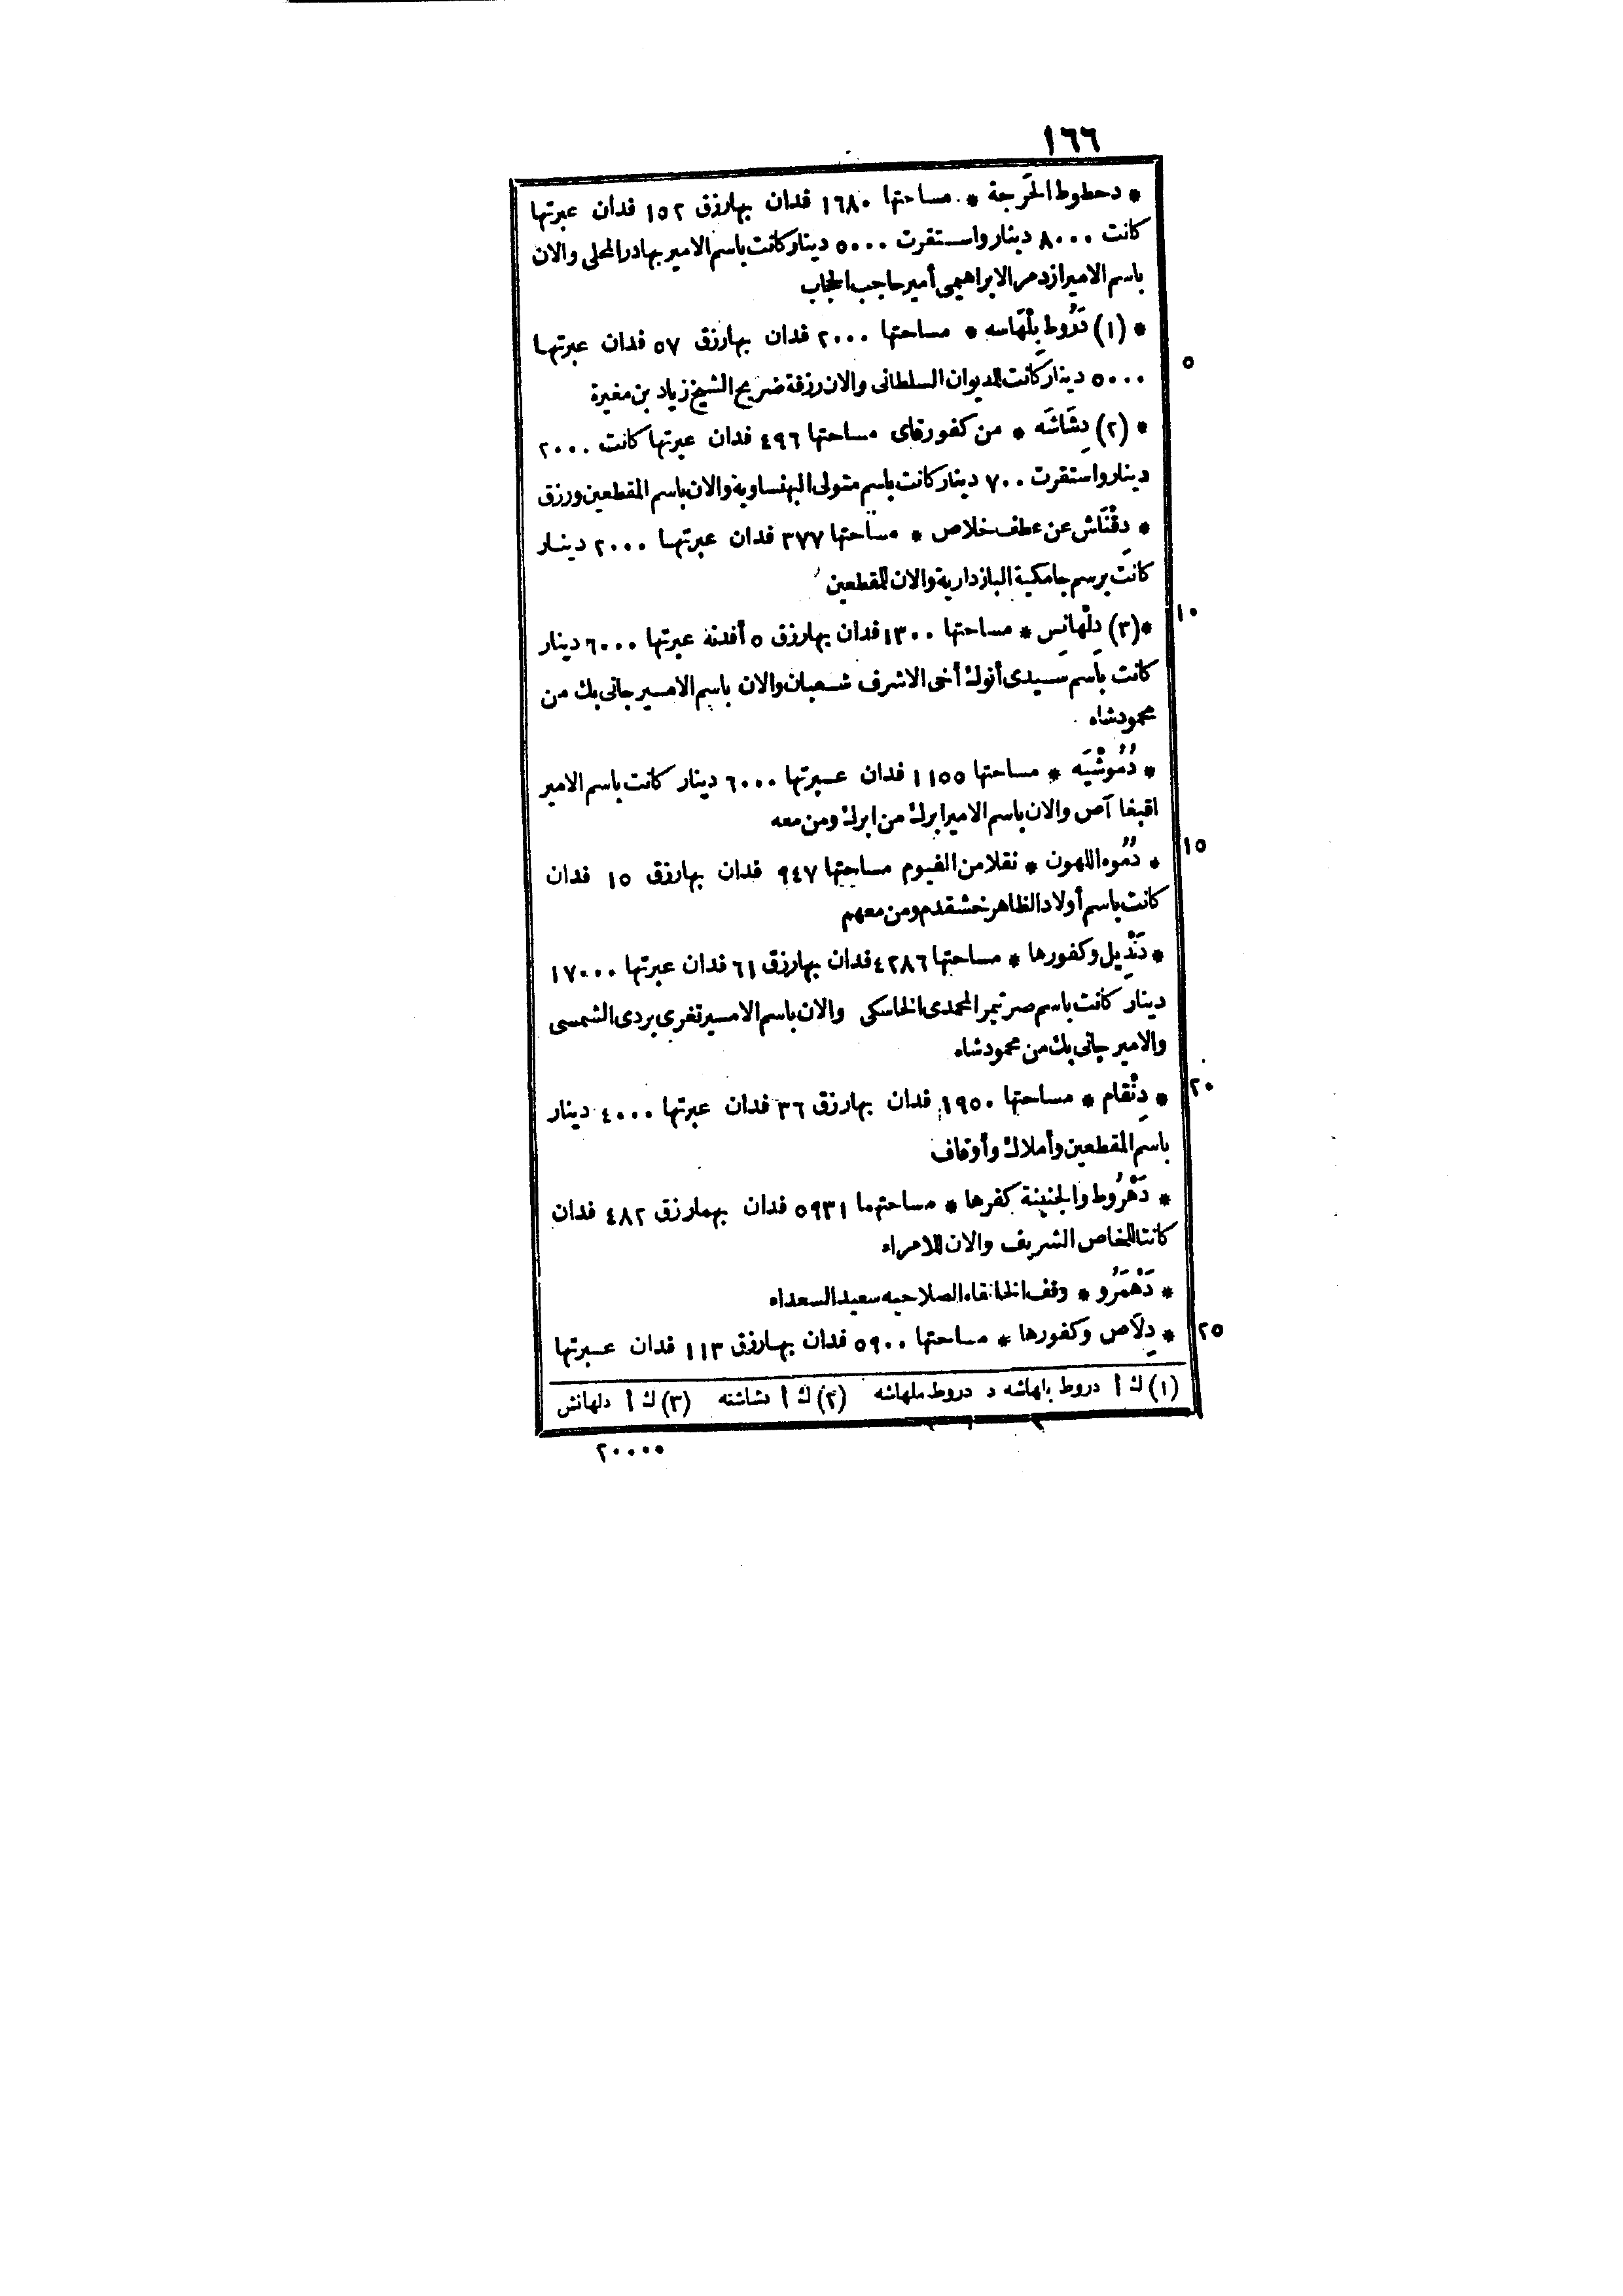 ١٦٦
* دحطوط الخَرجة * مساحتها ١٦٨٠ فدان بهارزق ١٥٢ فدان عبرتها
كانت ٨٠٠٠ دينار واستقرت ٥٠٠٠ دينار كانت باسم الامير بهادر المحلى والان
باسم الامير ازدمر الابراهيمى أمير حاجب الحجاب
* (١) دَرُوط بِلْهَاسه * مساحتها ٢٠٠٠ فدان بهارزق ٥٧ فدان عبرتها
٥
٥٠٠٠ دينار كانت للديوان السلطانى والان رزقة ضريح الشيخ زياد بن مغيرة
* (٢) دِشَاشَه * من كفور قاى مساحتها ٤٩٦ فدان عبرتها كانت ٢٠٠٠
دينار واستقرت ٧٠٠ دينار كانت باسم متولى البهنساوية والان باسم المقطعين ورزق
* دِقْنَاش عن عطف خلاص * مساحتها ٣٧٧ فدان عبرتها ٢٠٠٠ دينار
كانت برسم جامكية البازدارية والان للمقطعين
١٠
* (٣) دِلْهانِس * مساحتها ١٣٠٠ فدان بهارزق ٥ أفدنة عبرتها ٦٠٠٠ دينار
كانت باسم سيدى أنوك أخى الاشرف شعبان والان باسم الامير جانى بك من
محمود شاه
* دُمُوشْيَه * مساحتها ١١٥٥ فدان عبرتها ٦٠٠٠ دينار كانت باسم الامير
اقبغا آص والان باسم الامير ابرك من ابرك ومن معه
١٥
* دُمُوه اللهون * نقلا من الفيوم مساحتها ٩٤٧ فدان بهارزق ١٥ فدان
كانت باسم أولاد الظاهر خشقدم ومن معهم
* دَنْدِيل وكفورها * مساحتها ٤٢٨٦ فدان بهارزق ٦١ فدان عبرتها ١٧٠٠٠
دينار كانت باسم صرتيمر المحمدى الخاسكى والان باسم الامير تغرى بردى الشمسى
والامير جانى بك من محمود شاه
٢٠
* دِنْقام * مساحتها ١٩٥٠ فدان بهارزق ٣٦ فدان عبرتها ٤٠٠٠ دينار
باسم المقطعين وأملاك وأوقاف
* دَهْرُوط والجنينة كفرها * مساحتهما ٥٩٣١ فدان بهمارزق ٤٨٢ فدان
كانتا للخاص الشريف والان للامراء
* دَهْمَرُو * وقف الخانقاه الصلاحيه سعيد السعداء
٢٥
* دِلَاص وكفورها * مساحتها ٥٩٠٠ فدان بهارزق ١١٣ فدان عبرتها
(١) ك أ دروط بلهاشه د دروط ملهاشه (٢) ك أ دشاشته (٣) ك أ دلهانش
٢٠٠٠٠